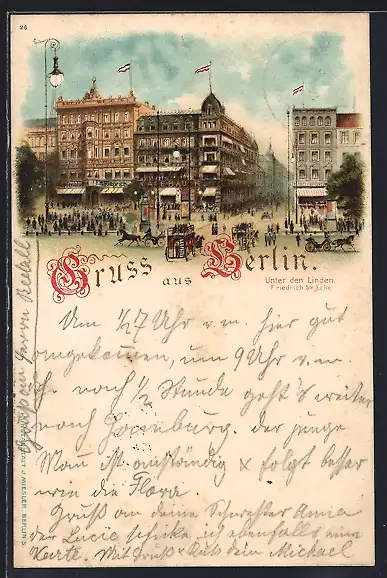 26
Gruss aus Berlin.
Unter den Linden
Friedrich Str. Ecke
Um 1/27 Uhr v. m. hier gut
angekommen, um 9 Uhr v. m.
nach 1/2 Stunde geht's weiter
nach Homburg. der junge
Mann ist anständig & folgt besser
wie die Flora
Gruß an deine Schwester Anna
der Lucie schicke ich ebenfalls eine
Karte. Mit Gruß & Kuß dein Michael
Gruß an Herrn
J. MIESLER, BERLIN S.